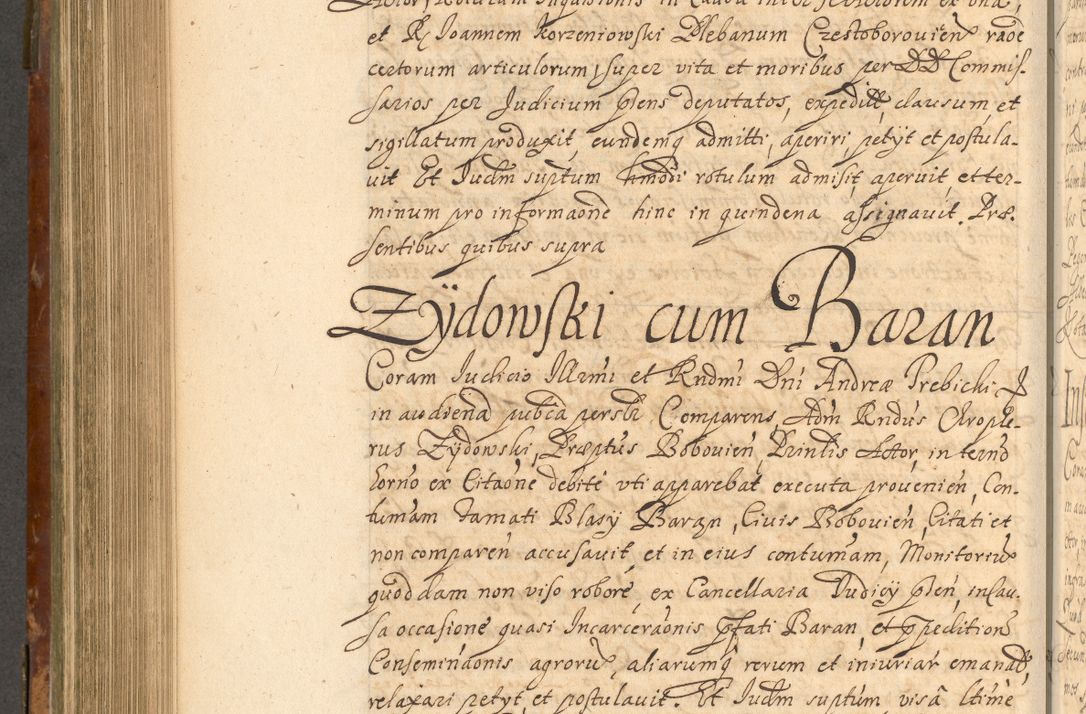 Actor, Rotulum Inquisitionis in Causa inter se Actorem ex una,
et R. Joannem Korzeniowski Plebanum Czestoborovien̄ raõe
certorum articulorum, super vita et moribus per DD Commis-
sarios per Judicium p̃lens deputatos, expedit̃, clausum et
sigillatum produxit, eundemq̃ admitti, aperiri, petyt et postula-
vit Et Judm̃ suptum hm̃odi rotulum admisit, aperuit, et ter-
minum pro informaõne hinc in quindena assignavit. Præ-
sentibus quibus supra
Zÿdowski cum Baran
Coram Judicio Illm̃i et Rndm̃i Dn̄i Andreæ Trebicki
in audiena pub̃ca persl̃r Comparens, Adm̃ Rndus Chrophe-
rus Zÿdowski, Præptus Bobovien̄, Prin̄lis Actor, in term̃o
horno ex Citaõne debite uti apparebat executa provenien̄, Con-
tumãm damati Blasÿ Baran, Civis Bobovien̄, Citati et
non comparen̄ accusavit, et in eius contumãm, Monitoriũ
quoddam non viso robore, ex Cancellaria Judicÿ p̃len̄, in Cau-
sa occasione quasi Incarcerãonis p̃fati Baran, et p̃peditioñ
Consemenãonis agroru᷈, aliarumq̃ rerum et iniuriar̃ emanat̃,
relaxari petyt, et postulavit. Et Judm̃ suptum visâ l̃time